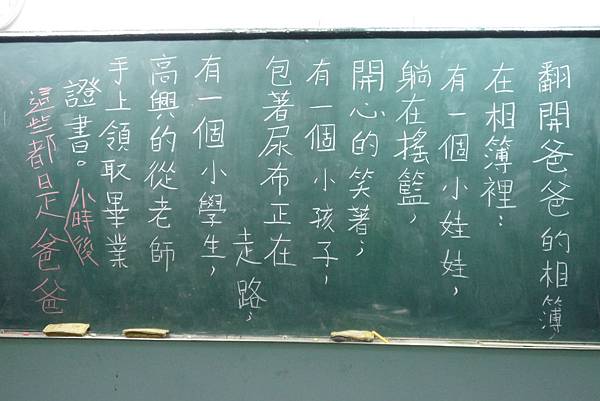 翻開爸爸的相簿,
在相簿裡:
有一個小娃娃,
躺在搖籃,
開心的笑著;
有一個小孩子,
包著尿布正在
走路,
有一個小學生,
高興的從老師
手上領取畢業
證書。
小時後
這些都是爸爸